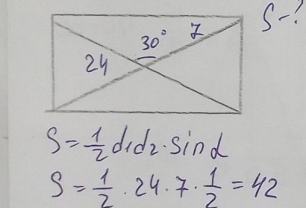 S-?
30° 7
24
S=1/2 d1d2·sinα
S=1/2·24·7·1/2=42